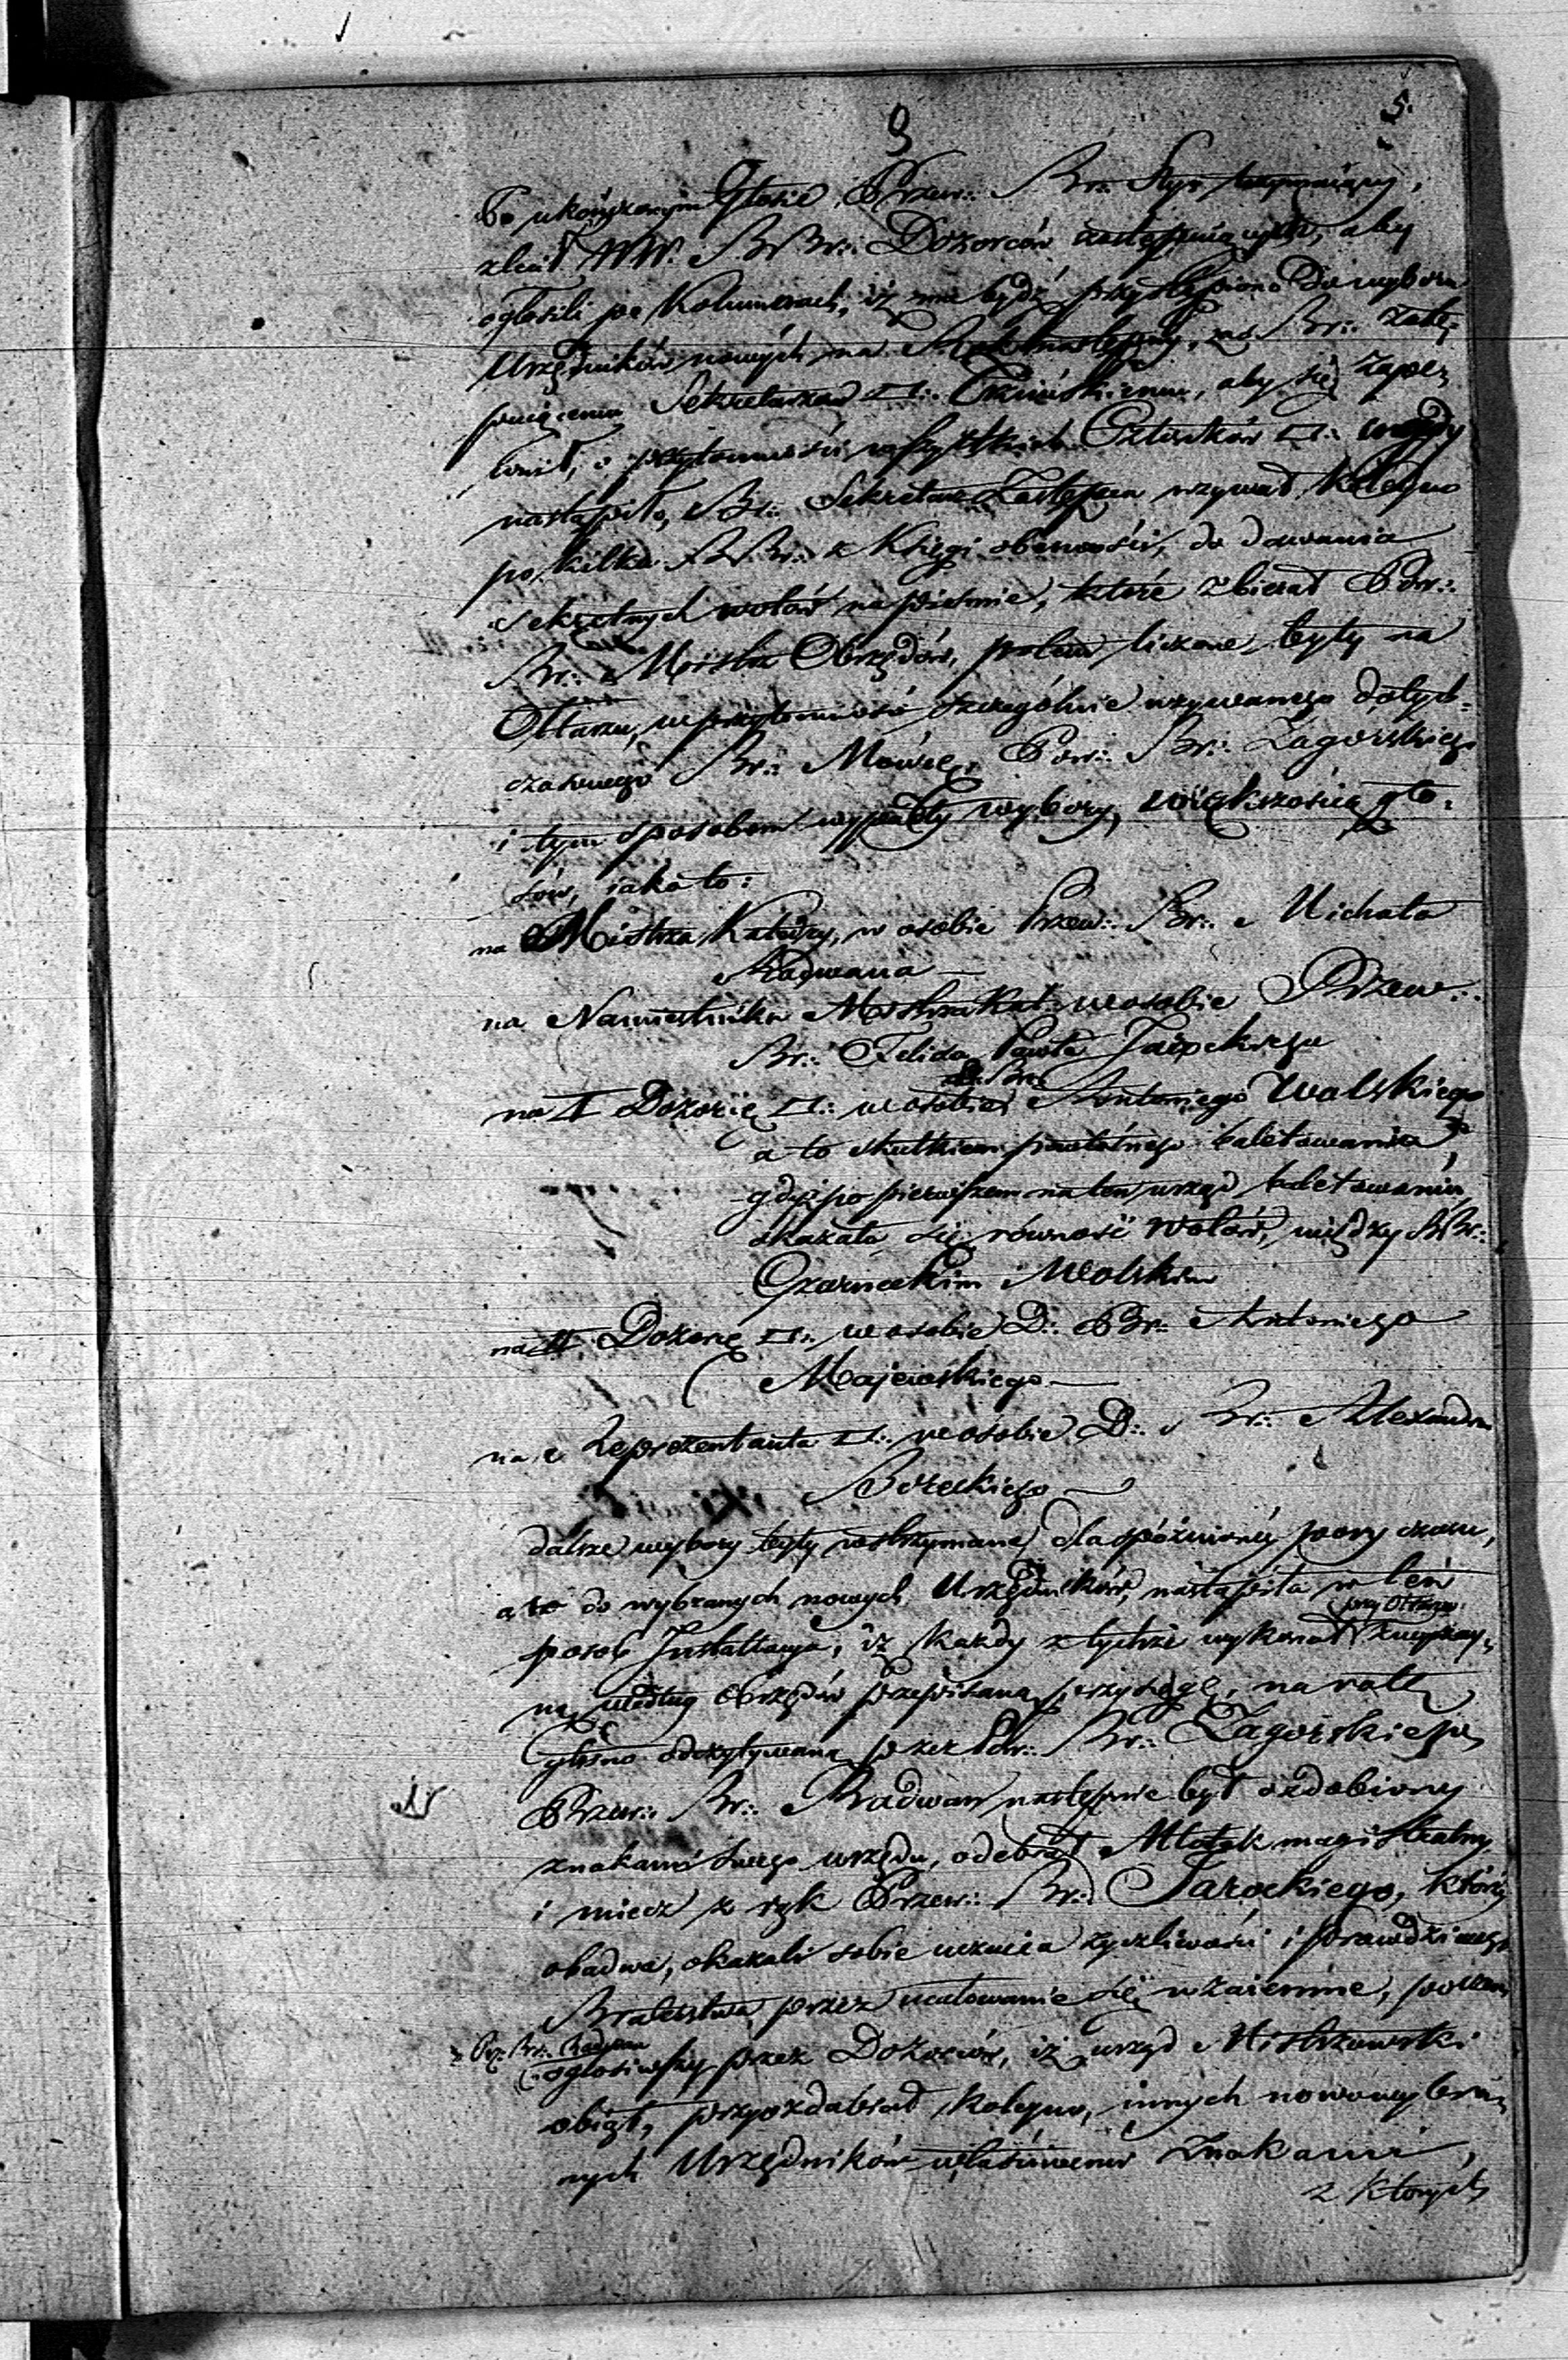 9
5.
Po ukończonym Głosie, Przew∴ Br∴ trzymaiący,
zlecił NN. BrBr∴ Dozorców aby
ogłosili po Kolumnach, iż ma bydź przystąpiono do wyboru
Urzędników nowych na Rok następny, zaś Br∴ Zastę-
puiącemu Sekretarzowi □∴ aby się zapew-
nił, o przytomności wszystkich Członków □∴
nastąpiło, Br∴ Sekretarz Zastępca wzywał koleyno
po kilku BrBr∴ z Księgi obecności, do dawania
sekretnych wotów na piśmie, które zbierał Pdw∴
Br∴ Mistrz Obrzędów, potem liczone były na
Ołtarzu, w przytomności szczególnie wzywanego dotych-
czasowego Br∴ Mówcę, Pow∴ Br∴ Zagórskiego
i tym sposobem wypadły wybory, większością gło-
sów, iako to:
na Mistrza Katedry, w osobie Przew∴ Br∴ Michała
Radwana —
na Namiestnika Mistrza Kat∴ w osobie Przew∴
Br∴ Felixa Pawła Jarockiego
na I Dozorcę □∴ w osobie D∴ Br∴ Antoniego Wolskiego
a to skutkiem powtórnego baletowania,
gdyż po pierwszem na ten urząd baletowaniu,
okazała się równość wotów, między BrBr∴
Czarneckim i Wolskim
na II Dozorcę □∴ w osobie D∴ Br∴ Antoniego
Majewskiego —
na Reprezentanta □∴ w osobie D∴ Br∴ Alexandra
Boreckiego —
dalsze wybory były wstrzymane dla spóźnionéy pory czasu,
a co do wybranych nowych Urzędników, nastąpiła w ten
sposób Installacya, iż każdy z tychże wykonał przy Ołtarzu
według Obrzędów przepisaną przysięgę, na rotę
głośno odczytywaną przez Pdw∴ Br∴ Zagórskiego,
Przew∴ Br∴ Radwan następnie był ozdobiony
znakami swego urzędu, odebrał Młotek magistralny,
i miecz z rąk Przew∴ Br∴ Jarockiego, którzy
obadwa, okazali sobie uczucia życzliwości i prawdziwego
Braterstwa przez ucałowanie się wzaiemne, poczem
Prz∴ Br∴ Radwan
ogłosiwszy przez Dozorców, iż urząd Mistrzowski
obiął, przyozdabiał koleyno, innych nowowybra-
nych Urzędników właściwemi Znakami,
z których